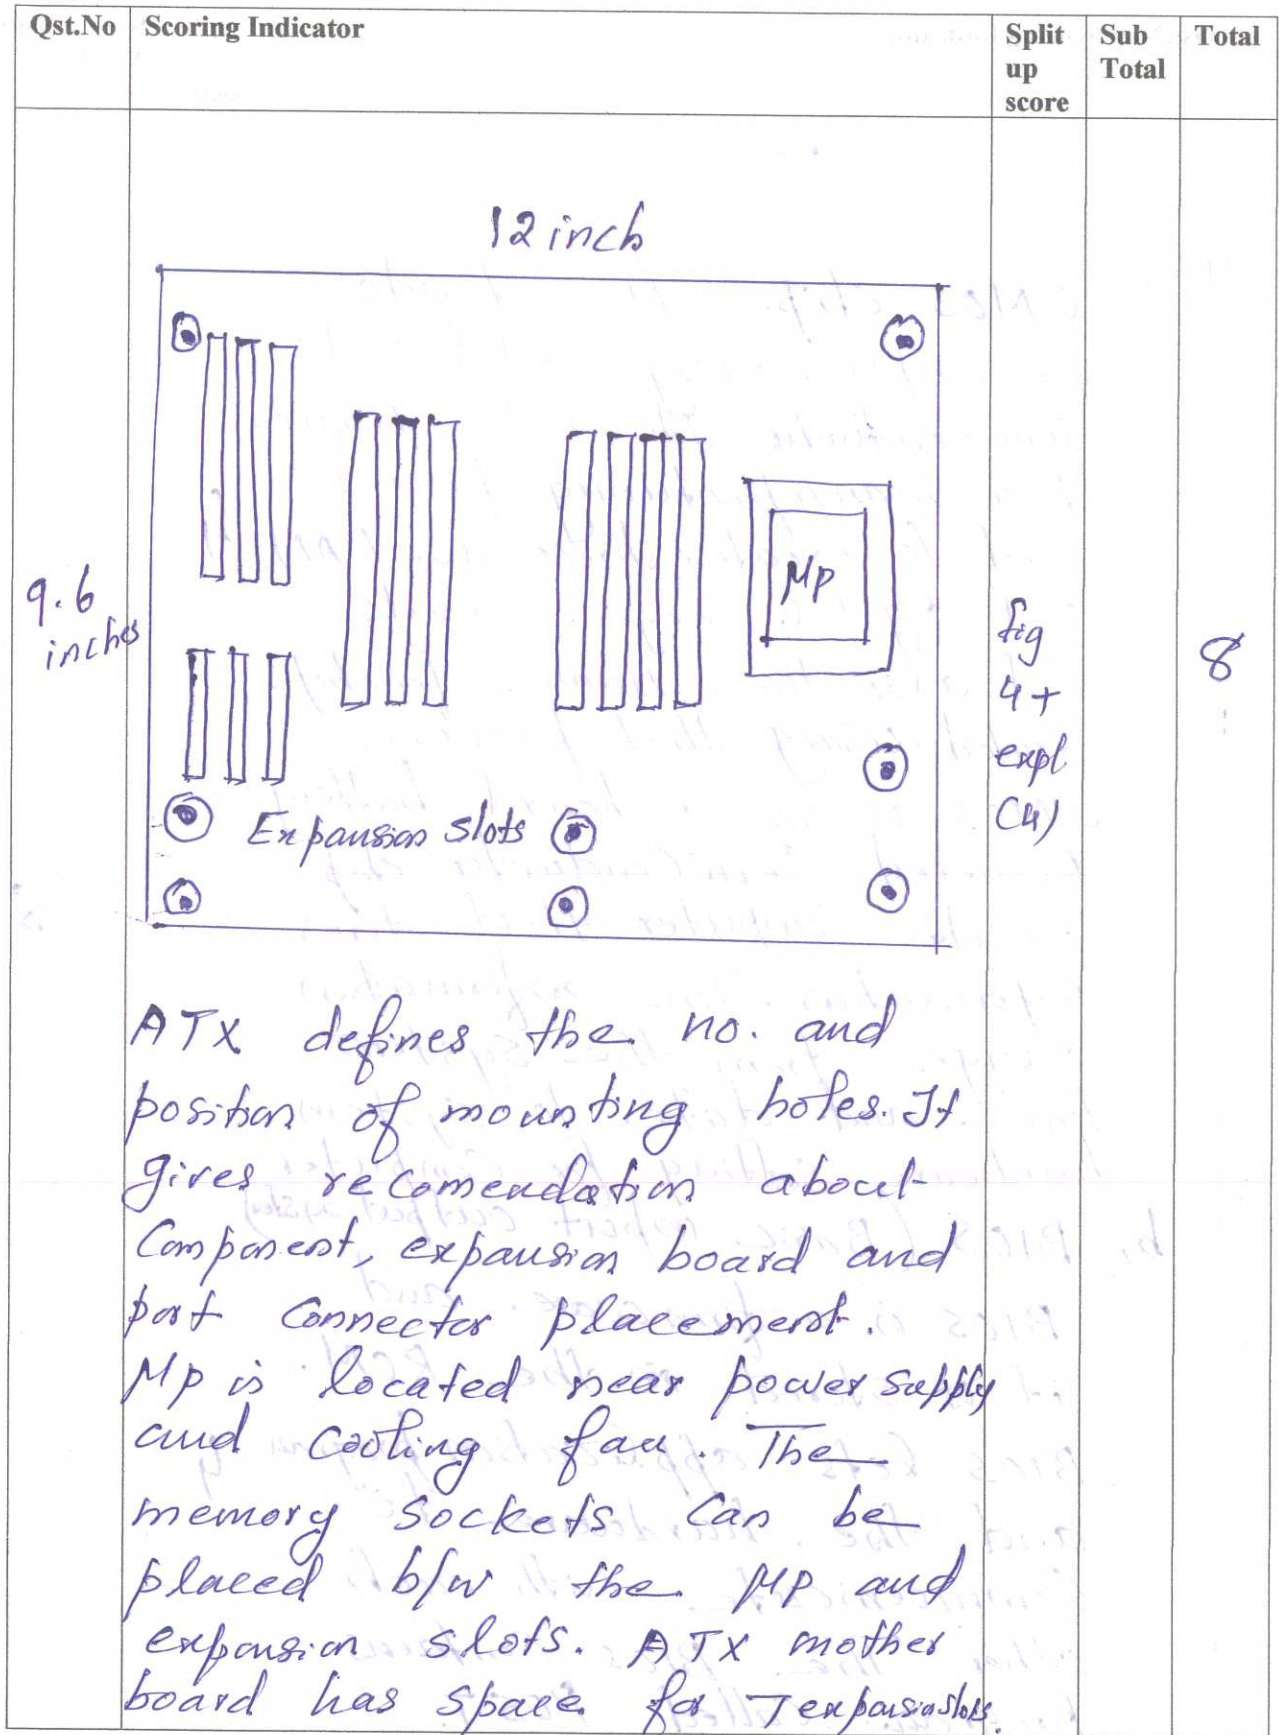 Qst.No Scoring Indicator Split up score Sub Total Total
12 inch
9.6
inches
MP
Expansion slots
fig
4+
expl
(4)
8
ATX defines the no. and
position of mounting holes. It
gives recomendation about
Component, expansion board and
port Connector placement.
MP is located near power supply
and cooling fan. The
memory sockets can be
placed b/w the MP and
expansion slots. ATX mother
board has space for 7 expansion slots.